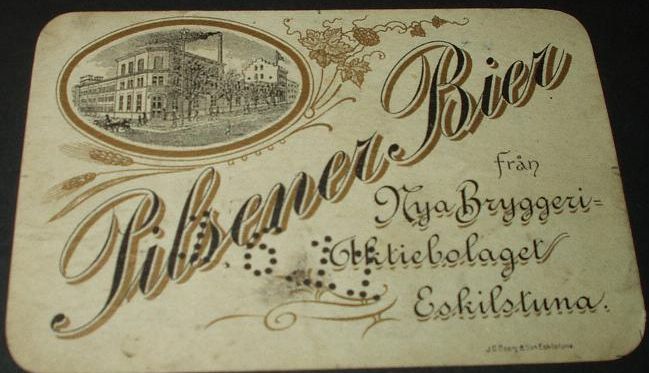 Pilsener Bier
från
Nya Bryggeri=
Aktiebolaget
Eskilstuna.